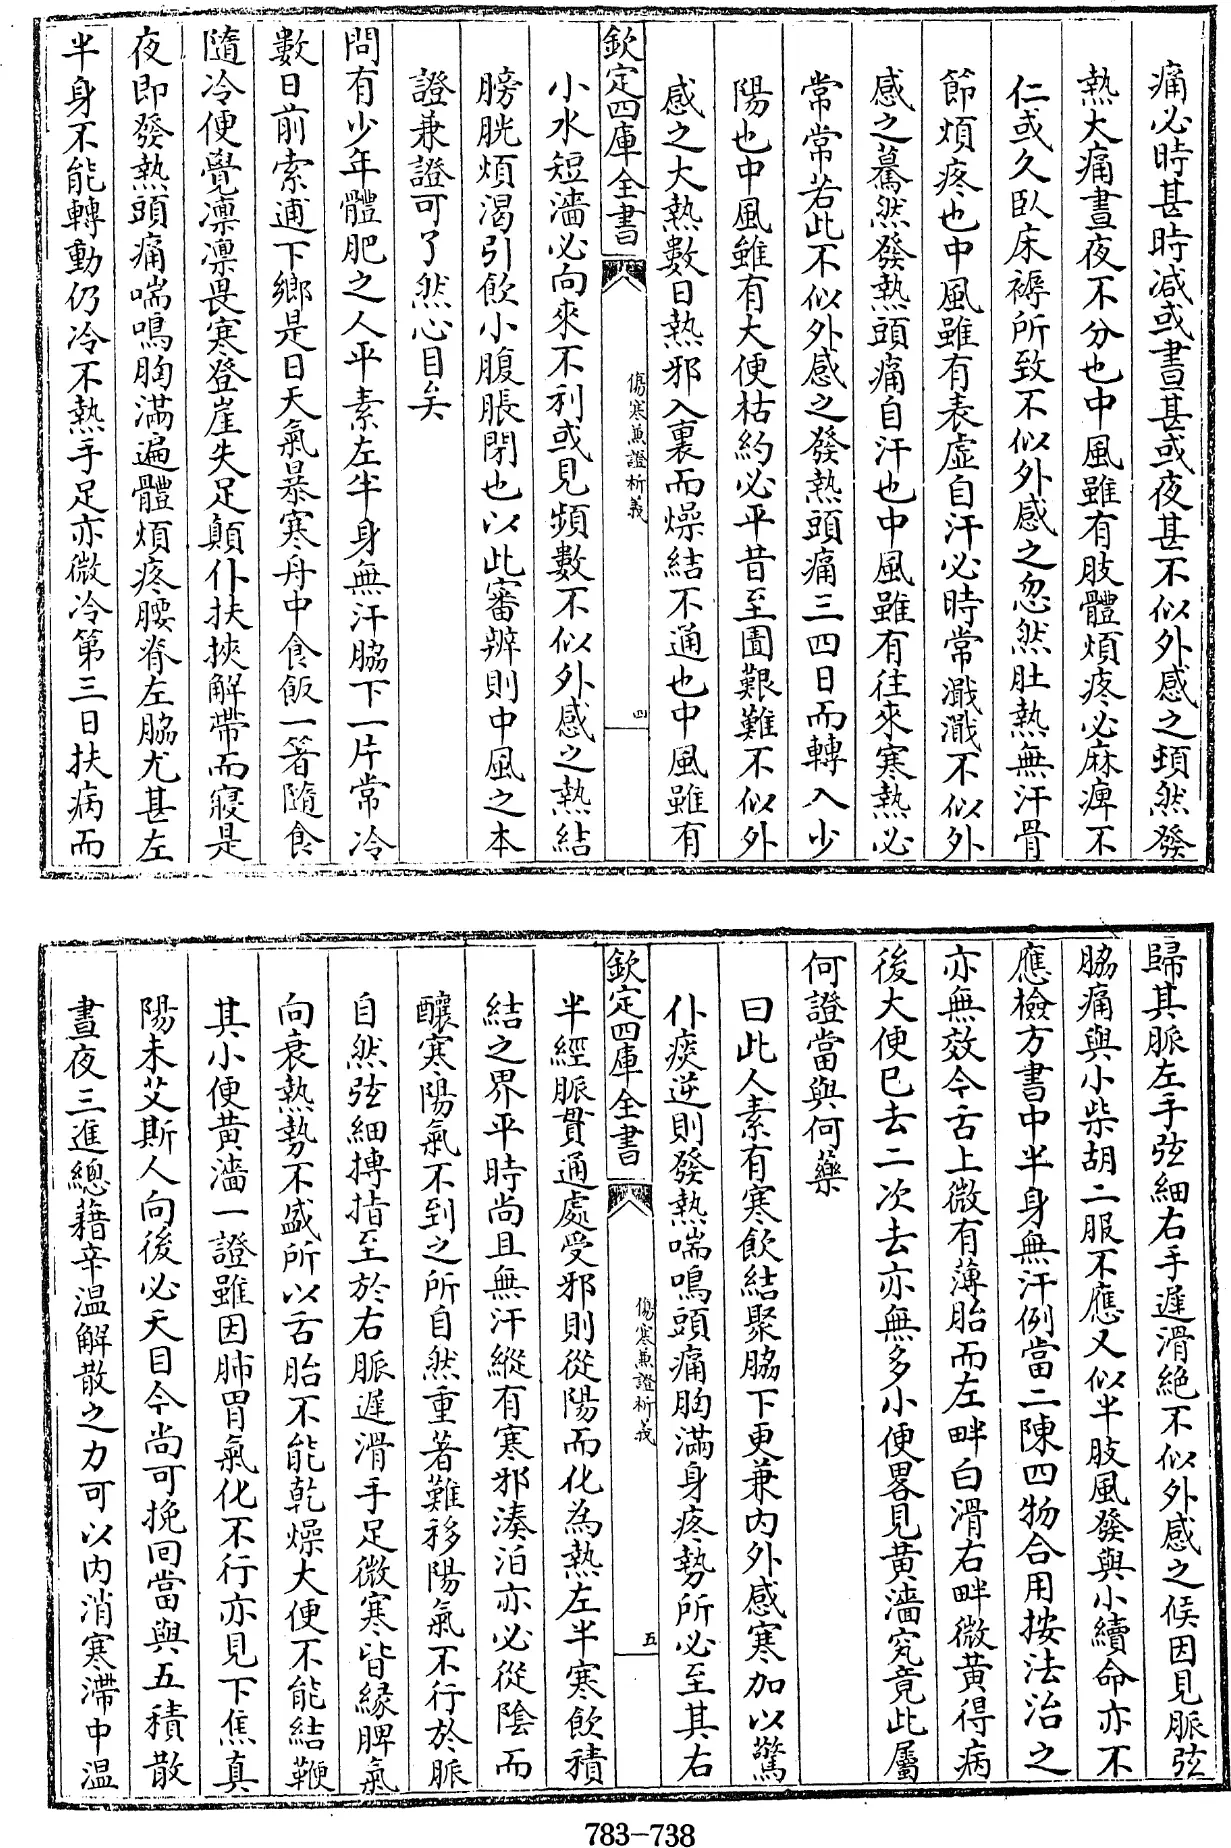 痛必時甚時減或晝甚或夜甚不似外感之頓然發
熱大痛晝夜不分也中風雖有肢體煩疼必麻痺不
仁或久臥床褥所致不似外感之忽然壯熱無汗骨
節煩疼也中風雖有表虛自汗必時常濈濈不似外
感之驀然發熱頭痛自汗也中風雖有往來寒熱必
常常若此不似外感之發熱頭痛三四日而轉入少
陽也中風雖有大便枯約必平昔至圊艱難不似外
感之大熱數日熱邪入裏而燥結不通也中風雖有
欽定四庫全書
傷寒兼證析義
四
小水短濇必向來不利或見頻數不似外感之熱結
膀胱煩渴引飲小腹脹閉也以此審辨則中風之本
證兼證可了然心目矣
問有少年體肥之人平素左半身無汗脇下一片常冷
數日前索逋下鄉是日天氣暴寒舟中食飯一箸隨食
隨冷便覺凜凜畏寒登崖失足顛仆扶挾解帶而寢是
夜即發熱頭痛喘鳴胸滿遍體煩疼腰脊左脇尤甚左
半身不能轉動仍冷不熱手足亦微冷第三日扶病而
歸其脈左手弦細右手遲滑絶不似外感之候因見脈弦
脇痛與小柴胡二服不應又似半肢風發與小續命亦不
應檢方書中半身無汗例當二陳四物合用按法治之
亦無效今舌上微有薄胎而左畔白滑右畔微黃得病
後大便已去二次去亦無多小便畧見黃濇究竟此屬
何證當與何藥
曰此人素有寒飲結聚脇下更兼內外感寒加以驚
仆痰逆則發熱喘鳴頭痛胸滿身疼勢所必至其右
欽定四庫全書
傷寒兼證析義
五
半經脈貫通處受邪則從陽而化為熱左半寒飲積
結之界平時尚且無汗縱有寒邪湊泊亦必從陰而
釀寒陽氣不到之所自然重著難移陽氣不行於脈
自然弦細摶指至於右脈遲滑手足微寒皆緣脾氣
向衰熱勢不盛所以舌胎不能乾燥大便不能結鞕
其小便黃濇一證雖因肺胃氣化不行亦見下焦真
陽未艾斯人向後必夭目今尚可挽回當與五積散
晝夜三進總藉辛温解散之力可以內消寒滯中温
783-738